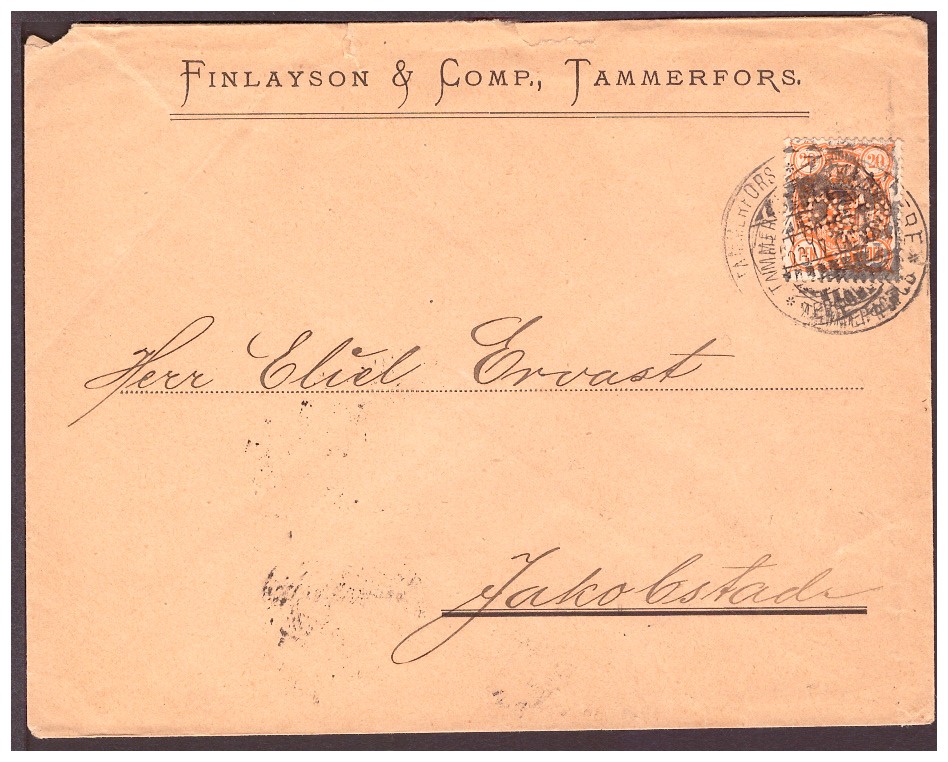 FINLAYSON & COMP., TAMMERFORS.
20 20
TAMMERFORS
Herr Eliel Ervast
Jakobstad